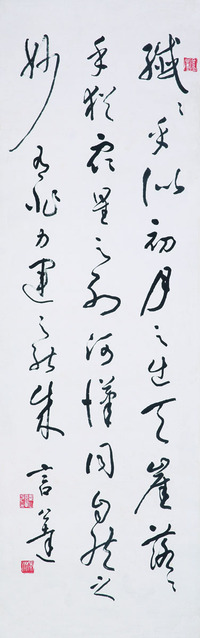 纖〻乎似初月之出天崖落〻
乎猶衆星之列河漢同自然之
妙有非力運之能成 言恭達